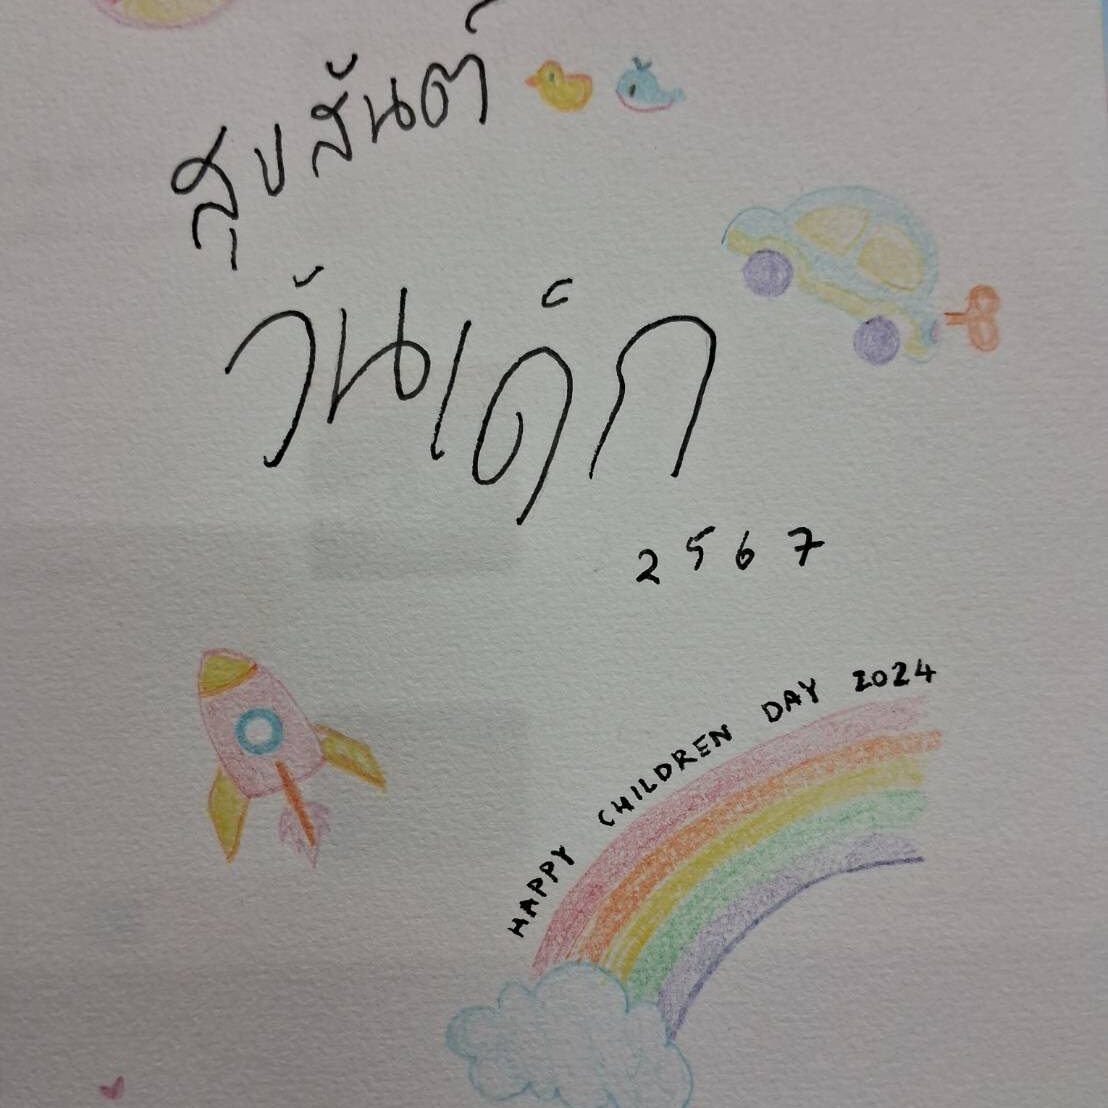 สุขสันต์
วันเด็ก
2567
HAPPY CHILDREN DAY 2024